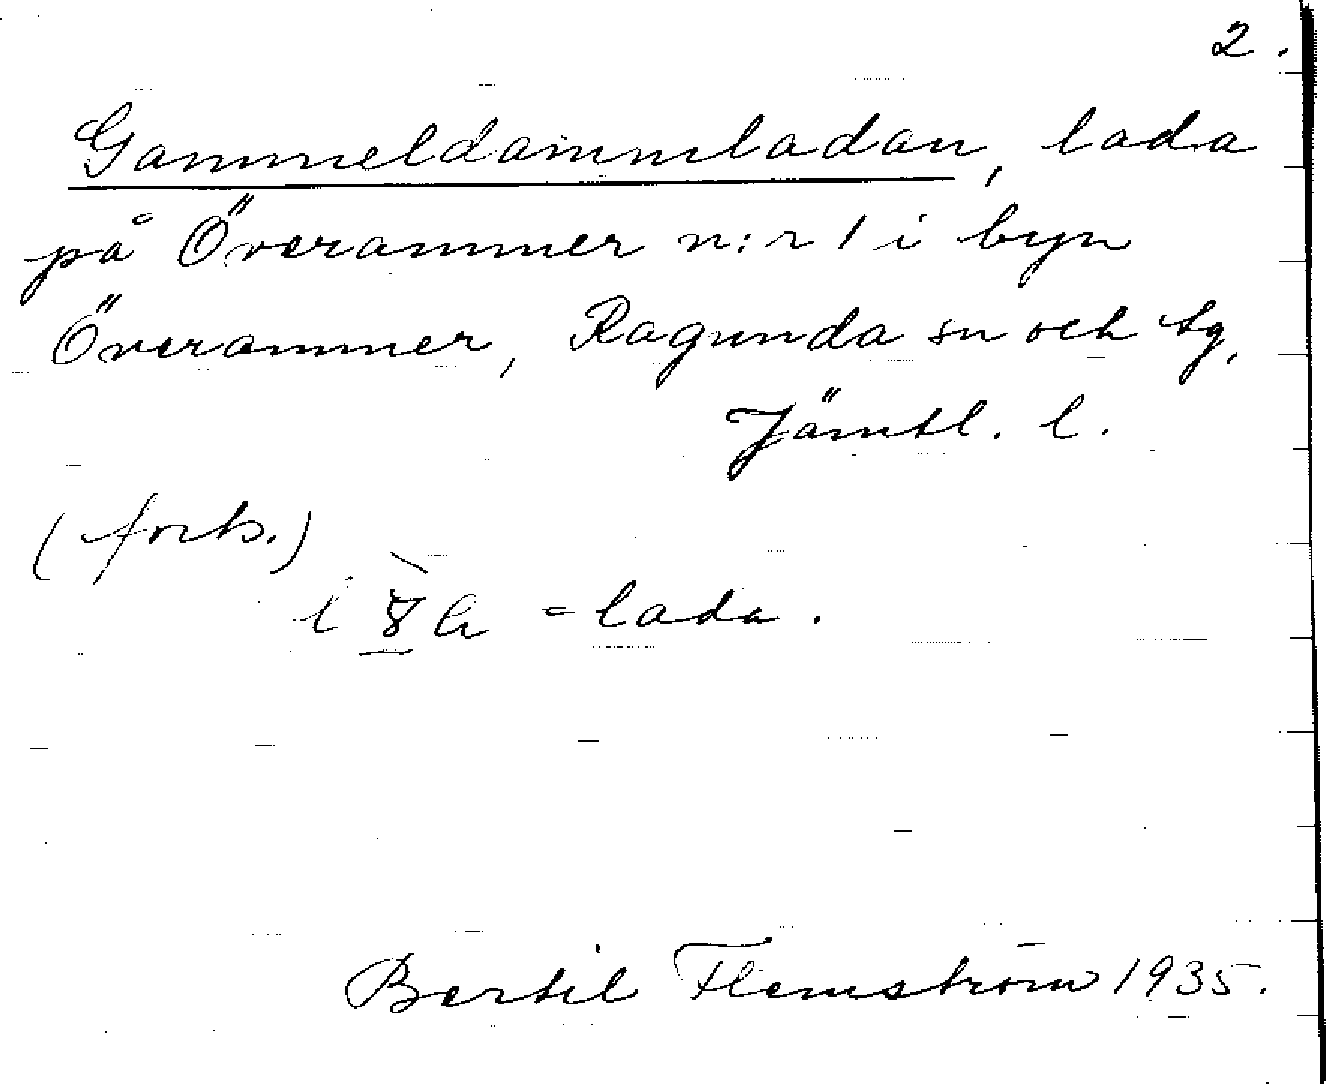 2.
Gammeldammladan, lada
på Överammer n:r 1 i byn
Överammer, Ragunda sn och tg,
Jämtl. l.
(forts.)
= lada.
Bertil Flemström 1935.